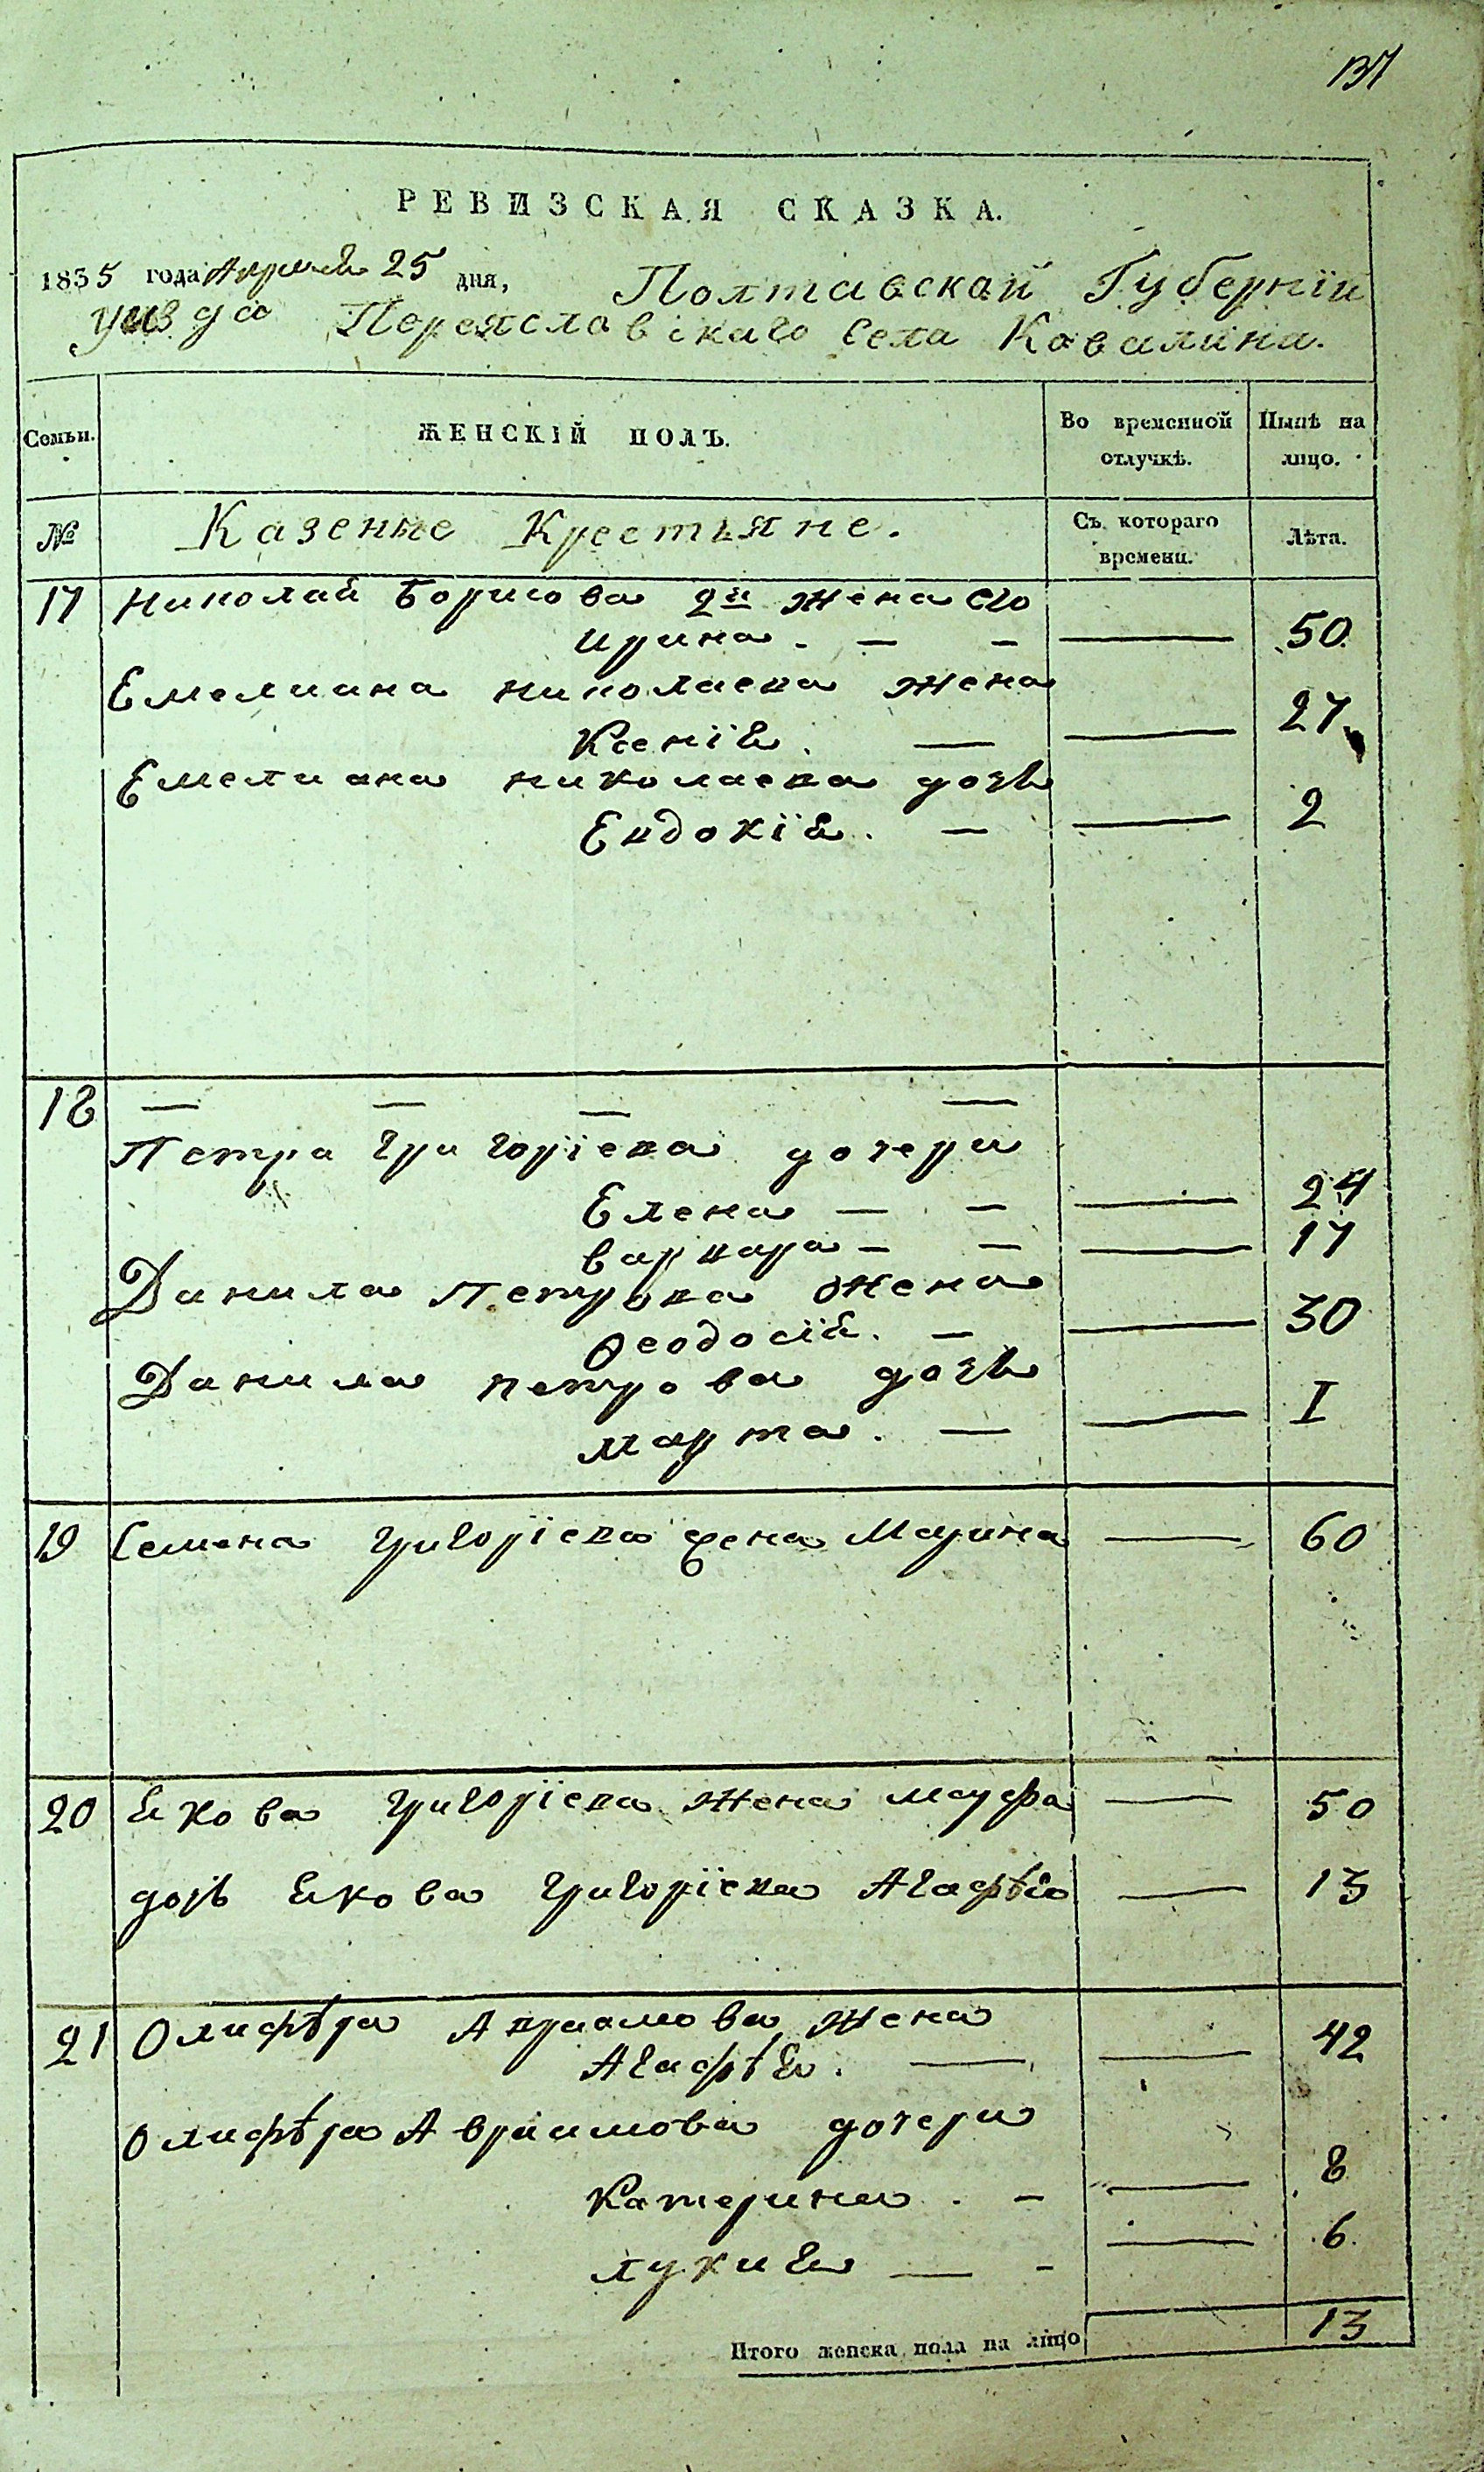 137
РЕВИЗСКАЯ СКАЗКА.
1835 года Апреля 25 дня, Полтавской Губернїи
уизда Переяславскаго Села Ковалина.
Семьи. ЖЕНСКІЙ ПОЛЪ. Во временной отлучкѣ. Нынѣ на лицо.
№ Казеные Крестьяне. Съ котораго времени. Лѣта.
17 Николай Борисова 2я жена его
Ирина. — — — 50
Емелиана николаева жена
Ксенїя. — — 27
Емелиана николаева дочь
Евдокїя. — — 2
18 — — — —
Петра Григорїева дочери
Елена — — — 24
Варвара — — — 17
Данила Петрова жена
Ѳеодосїя. — — 30
Данила петрова дочь
марта. — — I
19 Семена Григорїева жена Марина — 60
20 Якова Григорїева жена марфа — 50
дочь Якова Григорїева Агафѣя — 13
21 Олифѣра Авраамова жена
Агафѣя. — — 42
Олифѣра Авраамова дочери
Катерина. — — 8
лукия — — — 6
Итого женска пола на лицо 13